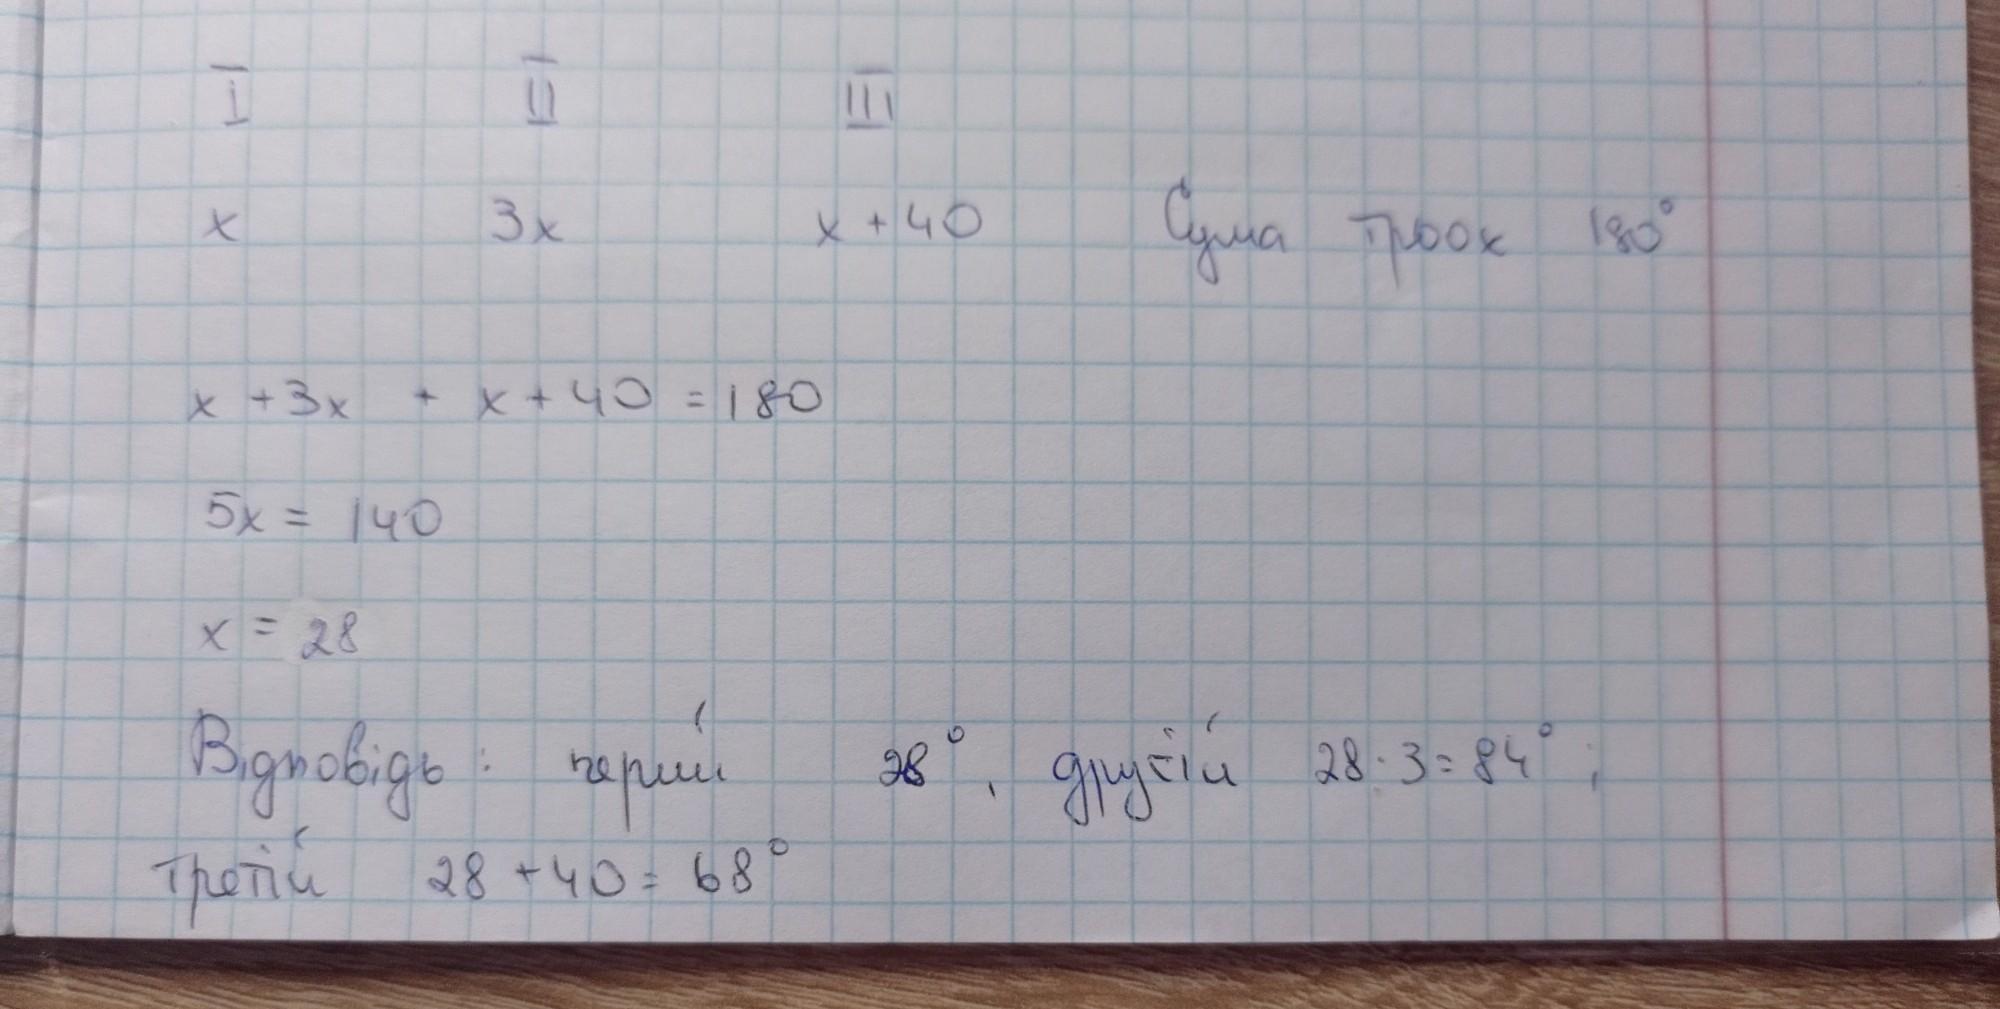 I II III
x 3x x + 40 Сума трьох 180°
x + 3x + x + 40 = 180
5x = 140
x = 28
Відповідь: перший 28°, другій 28 · 3 = 84°;
третій 28 + 40 = 68°